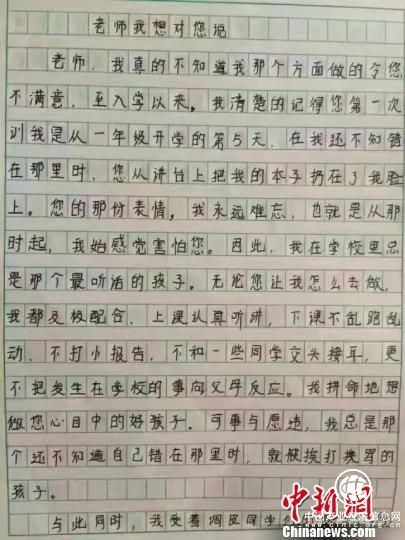 老师我想对您说
老师，我真的不知道我那个方面做的令您
不满意，至入学以来。我清楚的记得您第一次
训我是从一年级开学的第5天，在我还不知错
在那里时，您从讲台上把我的本子扔在了我脸
上。您的那份表情，我永远难忘，也就是从那
时起，我始感觉害怕您。因此，我在学校里总
是那个最听话的孩子。无论您让我怎么去做，
我都及极配合，上课认真听讲，下课不乱跑乱
动、不打小报告，不和一些同学交头接耳，更
不把发生在学校的事向父母反应。我拼命地想
做您心目中的好孩子。可事与愿违，我总是那
个还不知道自己错在那里时，就被挨打挨骂的
孩子。
与此同时，我受着调皮同学
中新网